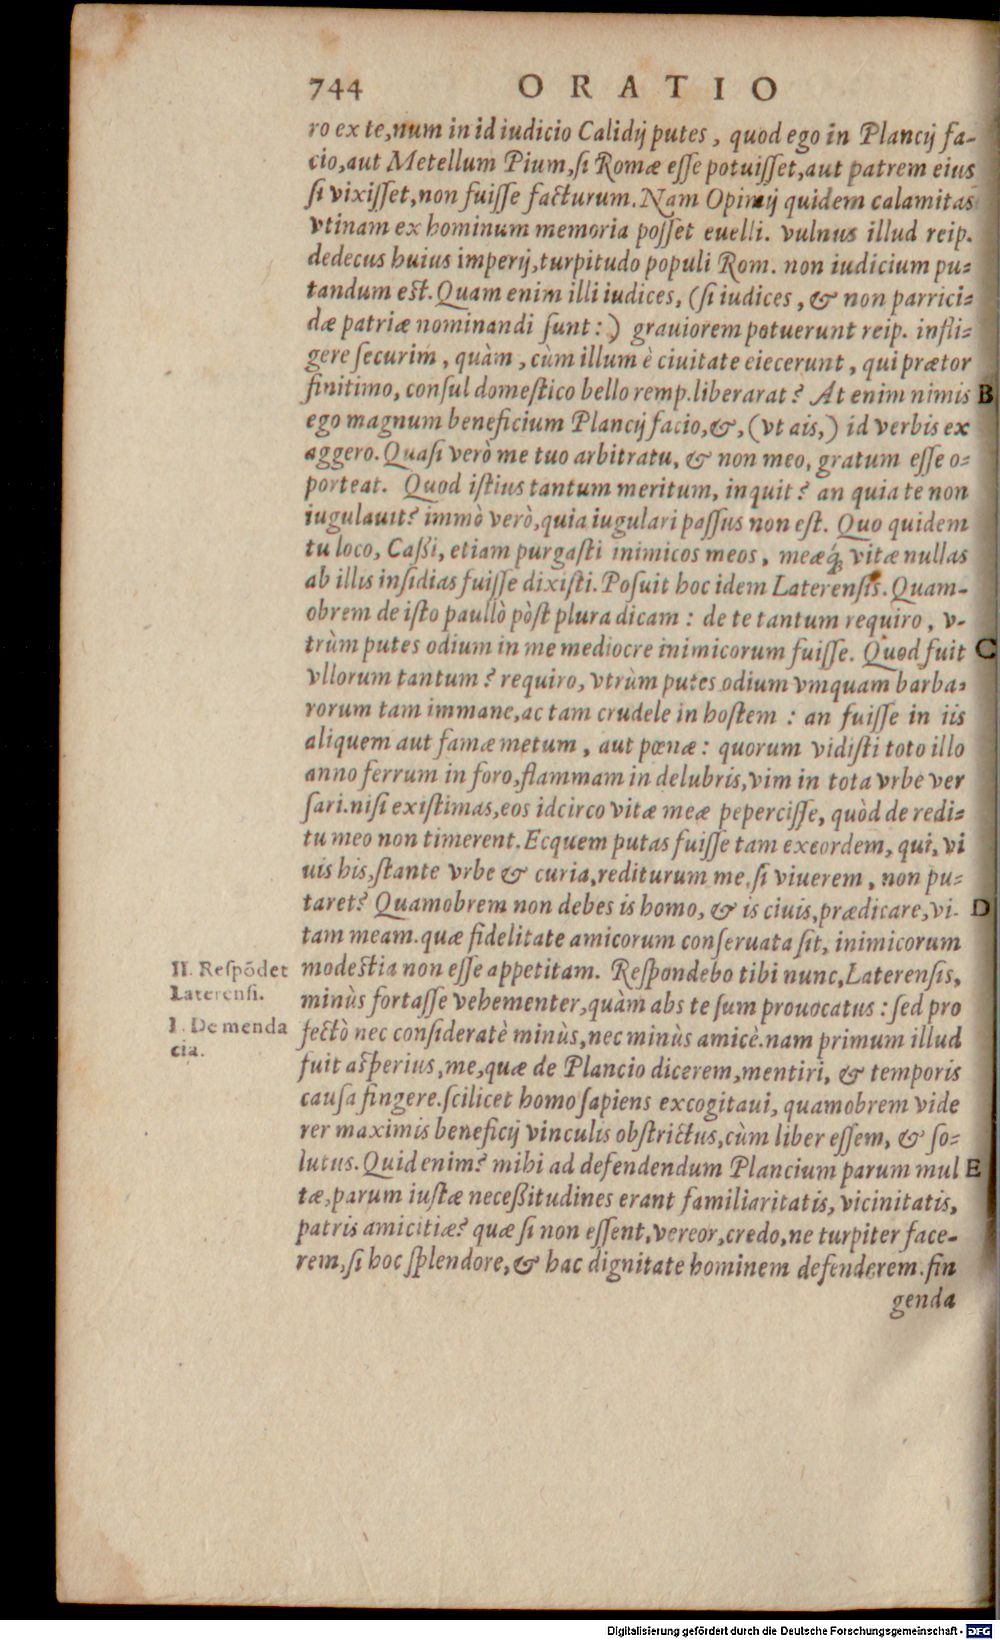 744 ORATIO
ro ex te, num in id iudicio Calidij putes, quod ego in Plancij fa-
cio, aut Metellum Pium, ſi Romæ eſſe potuiſſet, aut patrem eius
ſi vixiſſet, non fuiſſe facturum. Nam Opimij quidem calamitas
vtinam ex hominum memoria poſſet euelli. vulnus illud reip.
dedecus huius imperij, turpitudo populi Rom. non iudicium pu-
tandum est. Quam enim illi iudices, (ſi iudices, & non parrici-
dæ patriæ nominandi ſunt:) grauiorem potuerunt reip. infli-
gere ſecurim, quàm, cùm illum è ciuitate eiecerunt, qui prætor
finitimo, conſul domeſtico bello remp. liberarat? At enim nimis B
ego magnum beneficium Plancij facio, &, (vt ais,) id verbis ex
aggero. Quaſi verò me tuo arbitratu, & non meo, gratum eſſe o-
porteat. Quod iſtius tantum meritum, inquit? an quia te non
iugulauit? immò verò, quia iugulari paſſus non eſt. Quo quidem
tu loco, Caßi, etiam purgaſti inimicos meos, meæq́; vitæ nullas
ab illis inſidias fuiſſe dixiſti. Poſuit hoc idem Laterenſis. Quam-
obrem de iſto paullò pòſt plura dicam: de te tantum requiro, v-
trùm putes odium in me mediocre inimicorum fuiſſe. Quod fuit C
vllorum tantum? requiro, vtrùm putes odium vmquam barba-
rorum tam immane, ac tam crudele in hoſtem: an fuiſſe in iis
aliquem aut famæ metum, aut pœnæ: quorum vidiſti toto illo
anno ferrum in foro, flammam in delubris, vim in tota vrbe ver
ſari. niſi exiſtimas, eos idcirco vitæ meæ peperciſſe, quòd de redi-
tu meo non timerent. Ecquem putas fuiſſe tam excordem, qui, vi
uis his, ſtante vrbe & curia, rediturum me, ſi viuerem, non pu-
taret? Quamobrem non debes is homo, & is ciuis, prædicare, vi- D
tam meam. quæ fidelitate amicorum conſeruata ſit, inimicorum
II. Reſpõdet modestia non eſſe appetitam. Reſpondebo tibi nunc, Laterenſis,
Laterenſi. minùs fortaſſe vehementer, quàm abs te ſum prouocatus: ſed pro
I. De menda fectò nec conſideratè minùs, nec minùs amicè. nam primum illud
cia. fuit aſperius, me, quæ de Plancio dicerem, mentiri, & temporis
cauſa fingere. ſcilicet homo ſapiens excogitaui, quamobrem vide
rer maximis beneficij vinculis obſtrictus, cùm liber eſſem, & ſo-
lutus. Quid enim? mihi ad defendendum Plancium parum mul E
tæ, parum iuſtæ neceßitudines erant familiaritatis, vicinitatis,
patris amicitiæ? quæ ſi non eſſent, vereor, credo, ne turpiter face-
rem, ſi hoc ſplendore, & hac dignitate hominem defenderem. fin
genda
Digitalisierung gefördert durch die Deutsche Forschungsgemeinschaft - DFG